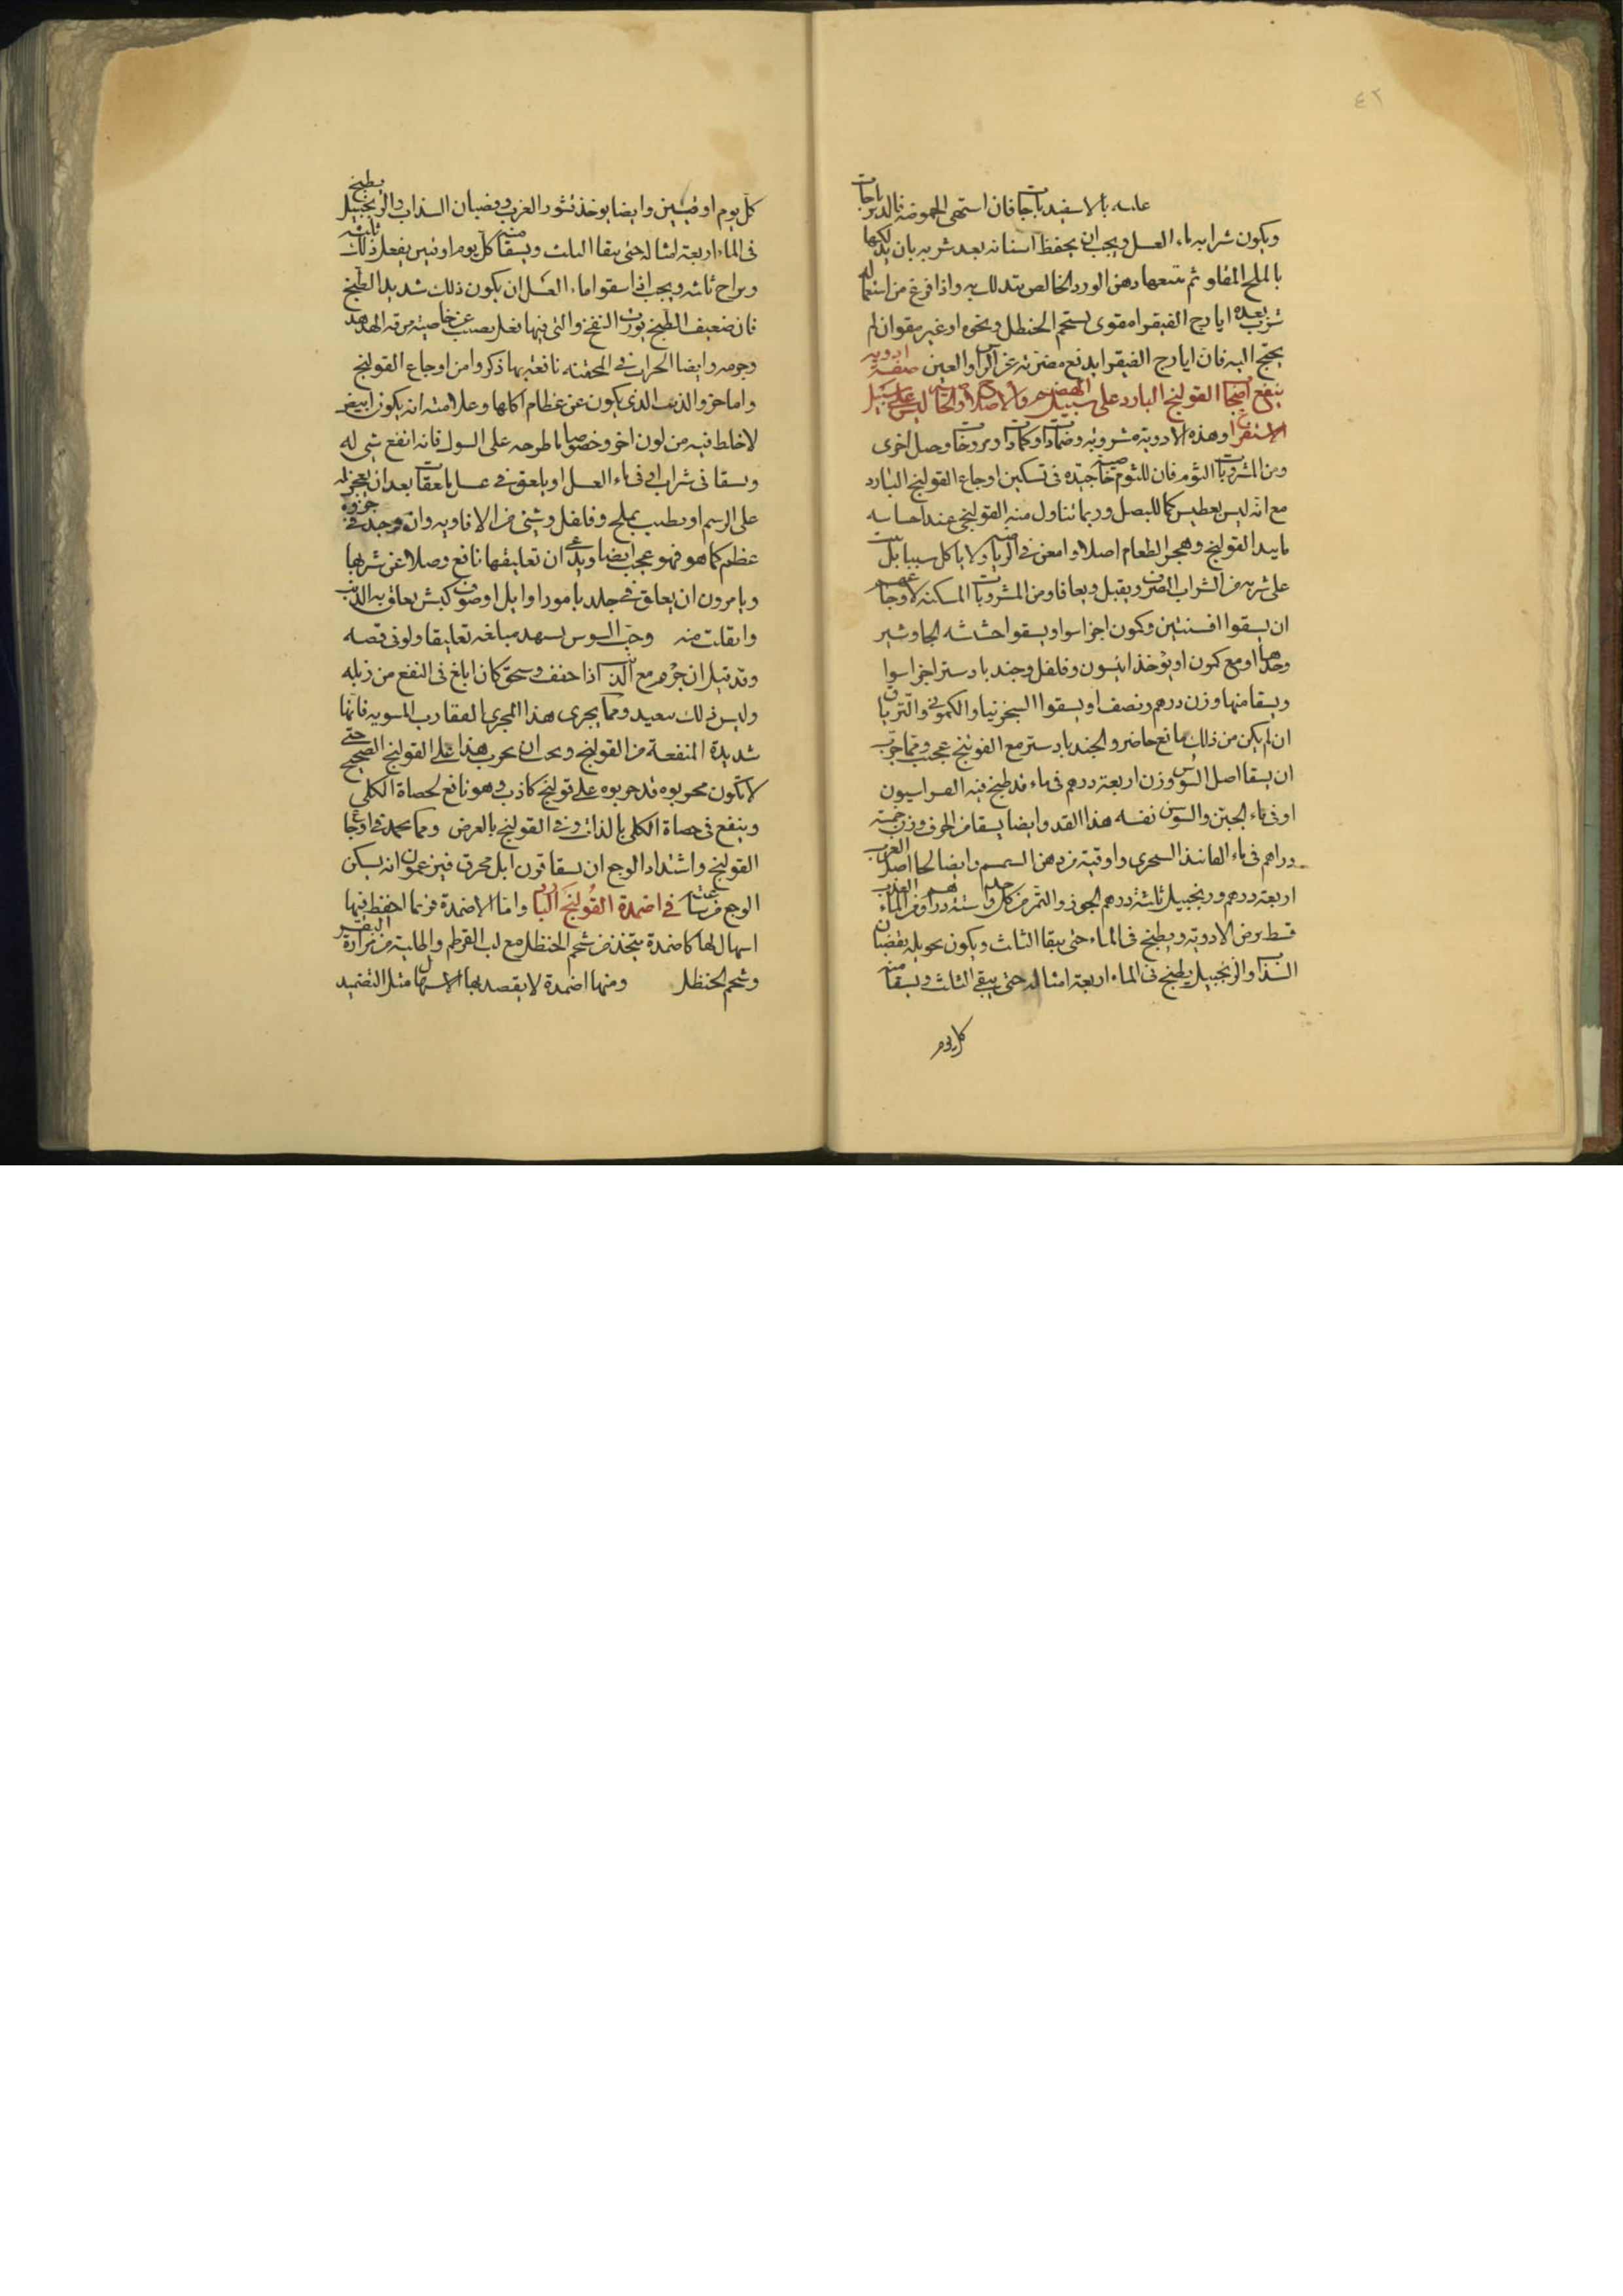 ٤٢
عليه بالاسفيدباجات فان استهى الحموضه فالديرباجات
ويكون شرابه ماء العسل ويجب ان يحفظ اسنانه بعد شربه بان يدلكها
بالملح المقلو ثم يتبعها دهن الورد الخالص يتدلك به واذا فرغ من استعماله
شرب بعده ايارج الفيقرا مقوى بشحم الحنطل ونحوه او غير مقوا ان لم
يحتج اليه فان ايارج الفيقرا يدفع مضرته عن الراس والعين صفة ادويه
ينفع اصحاب القولنج البارد على سبيل الهضم والاصلاح والخاصية ليس على سبيل
الاستفراغ وهذه الادوية مشروبه وضمادات وكمادات ومروخات وحيل اخرى
ومن المشروبات الثوم فان للثوم خاصية جيده في تسكين اوجاع القولنج البارد
مع انه ليس يعطيس كما للبصل وربما تناول منه القولنجى عند احساسه
ما يبدا القولنج وهجر الطعام اصلا وامعن في الرياضة ولا ياكل سيبا بل يبيت
على شربه من الشراب الصرف ويقبل ويعافا ومن المشروبات المسكنه لاوجاعهم
ان يسقوا افسنتين وكمون اجزا سوا ويسقوا حشيشه الجاوشير
وحدها او مع كمون او يؤخذ انيسون وفلفل وجندبادستر اجزا سوا
ويسقا منها وزن درهم ونصف او يسقوا السجزنيا والكمونى والترياق
ان لم يكن من ذلك مانع حاضر والجندبادستر مع الفوتنج عجيب ومما جرب
ان يسقا اصل السوس وزن اربعة درهم في ماء قد طبخ فيه الفراسيون
او في ماء الجبن والسوسن نفسه هذا القدر وايضا يسقا من الحرف وزن خمسة
دراهم في ماء الفانيذ السجرى واوقية من دهن السمسم وايضا لحا اصل الغرب
اربعة درهم وزنجبيل ثلثة درهم الجوز والتمر من كل واحد ستة دراهم ومن الماء العذب
قسط يرض الادوية ويطبخ في الماء حتى يبقا الثلث ويكون تحويله بقضبان
السذاب والزنجبيل يطبخ في الماء اربعة امثاله حتى يبقى الثلث ويسقا منه
كل يوم
كل يوم اوقيتين وايضا يوخذ قشور الغرب وقضبان السذاب والزنجبيل يطبخ
في الماء اربعة امثاله حتى يبقا الثلث ويسقا منه كل يوم اوقيتين يفعل ذلك ثلثه
ويراح ثلثه ويجب اذا سقوا ماء العسل ان يكون ذلك شديد الطبخ
فان ضعيف الطبخ يورث النفخ والتى فيها نعل بصبب عن خاصيته مرقه الهدهد
وجرمه وايضا الحراطين المجففه نافعة بها ذكروا من اوجاع القولنج
واما خرو الذيب الذي يكون عن عظام اكلها وعلامته انه يكون ابيض
لا خلط فيه من لون اخر وخصوصا ما طرحه على السوك فانه انفع شي له
ويسقا في شراب او في ماء العسل او يلعق في عسل بالعقات بعد ان يعجن له
على الرسم او يطيب بملح وفلفل وشئ من الافاويه وان وجد في جرزوه
عظم كما هو فهو عجب ايضا ويدعى ان تعليقها نافع وصلا عن شربها
ويامرون ان يعلق في جلد يامور او ايل او صوف كبش يعلق به الذيب
وانقلت منه وحب السوس يشهد مبالغه تعليقا ولو في قصه
وقد قيل ان جرم معى الذيب اذا جفف وسحق كان ابلغ في النفع من زبله
وليس ذلك ببعيد ومما يجرى هذا المجرى العقارب المسويه فانها
شديدة المنفعة من القولنج ويجب ان يجرب هذا على القولنج الصحيح حتى
لا تكون مجربوه قد جربوه على قولنج كاذب وهو نافع لحصاة الكلى
وينفع في حصاة الكلى بالذات وفي القولنج بالعرض ومما يحمد في اوجاع
القولنج واشتداد الوجع ان يسقا قرون ايل محرق فيزعمون انه يسكن
الوجع من ساعته في اضمدة القولنج البارد واما الاضمدة فربما احفظ فيها
اسهال لها كاضمدة يتخذ من شحم الحنظل مع لب القرطم والطلية من مرارة البقر
وشحم الحنظل ومنها اضمدة لا يقصد بها الاسهال مثل التضميد